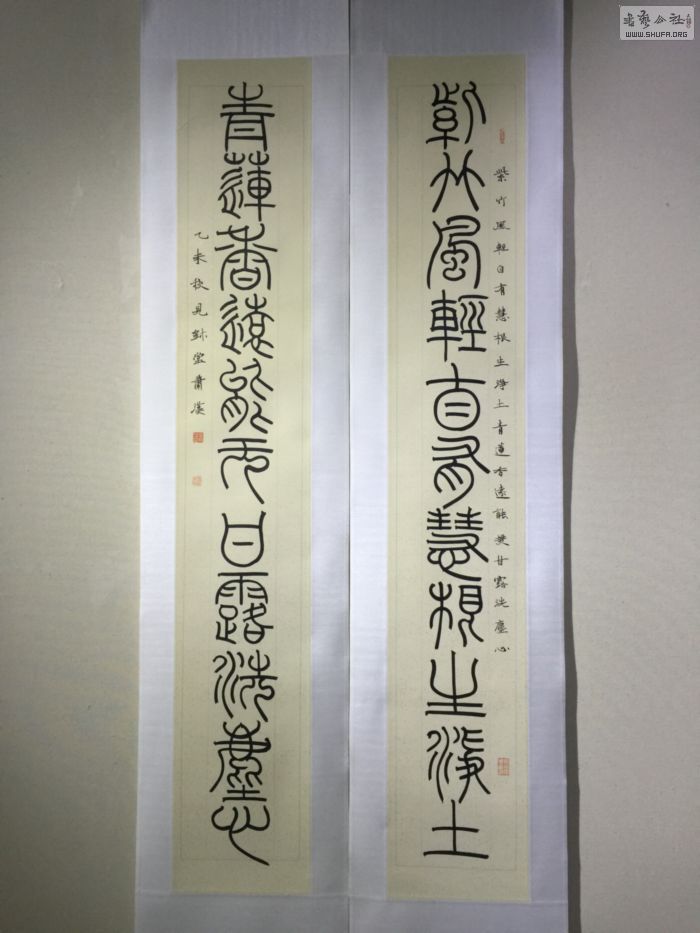 紫竹風輕自有慧根生淨土
紫竹風輕自有慧根生淨土青蓮香遠能𠬞甘露洗塵心
青蓮香遠能以甘露洗塵心
乙未秋見
書藝公社
WWW.SHUFA.ORG